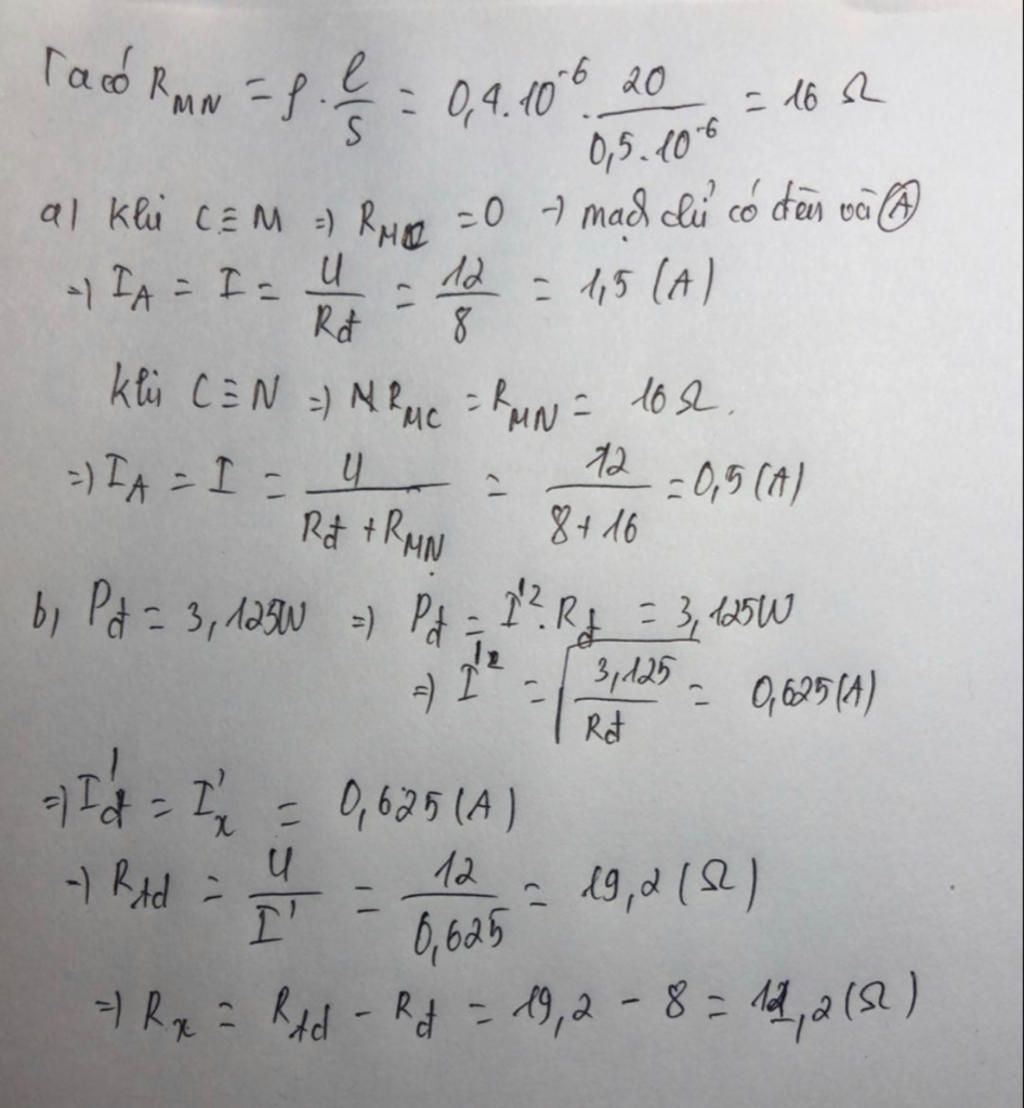 Ta có R_MN = ρ . l/S = 0,4.10^-6 . 20/(0,5.10^-6) = 16 Ω
a) Khi C ≡ M => R_MC = 0 -> mạch chỉ có đèn và (A)
=> I_A = I = U/Rđ = 12/8 = 1,5 (A)
Khi C ≡ N => R_MC = R_MN = 16 Ω.
=> I_A = I = U/(Rđ + R_MN) = 12/(8+16) = 0,5 (A)
b) Pđ = 3,125W => Pđ = I'^2 . Rđ = 3,125W
=> I'^2 = √(3,125/Rđ) = 0,625(A)
=> I'đ = I'x = 0,625 (A)
-> Rtđ = U/I' = 12/0,625 = 19,2 (Ω)
=> Rx = Rtđ - Rđ = 19,2 - 8 = 11,2 (Ω)